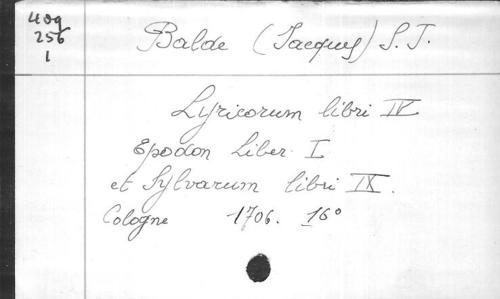 409
256
1
Balde (Jacques) S.J.
Lyricorum libri IV
Epodon Liber I
et Sylvarum libri IX.
Cologne 1706. 16°